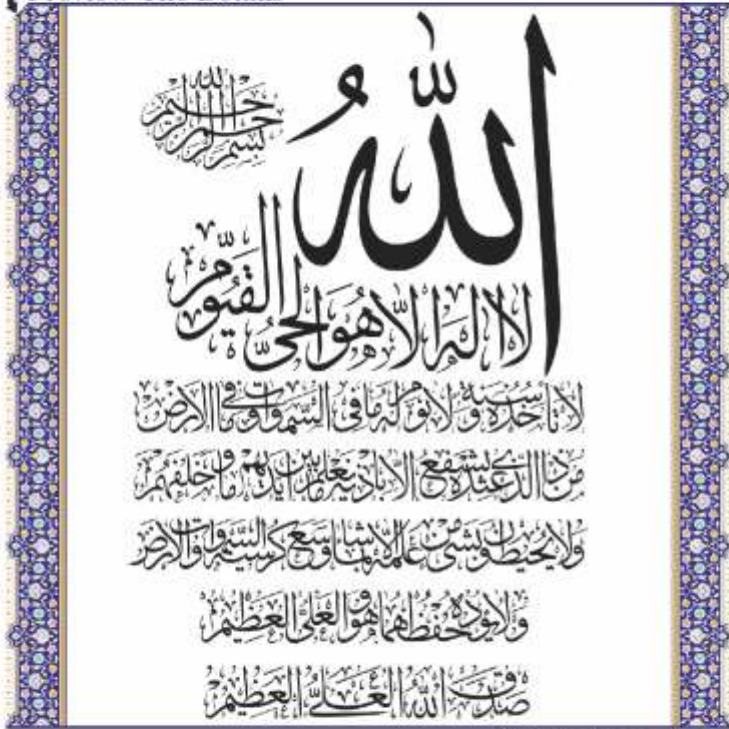 بسم الله الرحمن الرحيم
اللهُ
لا اله الا هو الحي القيوم
لا تأخذه سنة ولا نوم له ما في السموات وما في الارض
من ذا الذي يشفع عنده الا باذنه يعلم ما بين ايديهم وما خلفهم
ولا يحيطون بشئ من علمه الا بما شاء وسع كرسيه السموات والارض
ولا يؤده حفظهما وهو العلي العظيم
صدق الله العلي العظيم